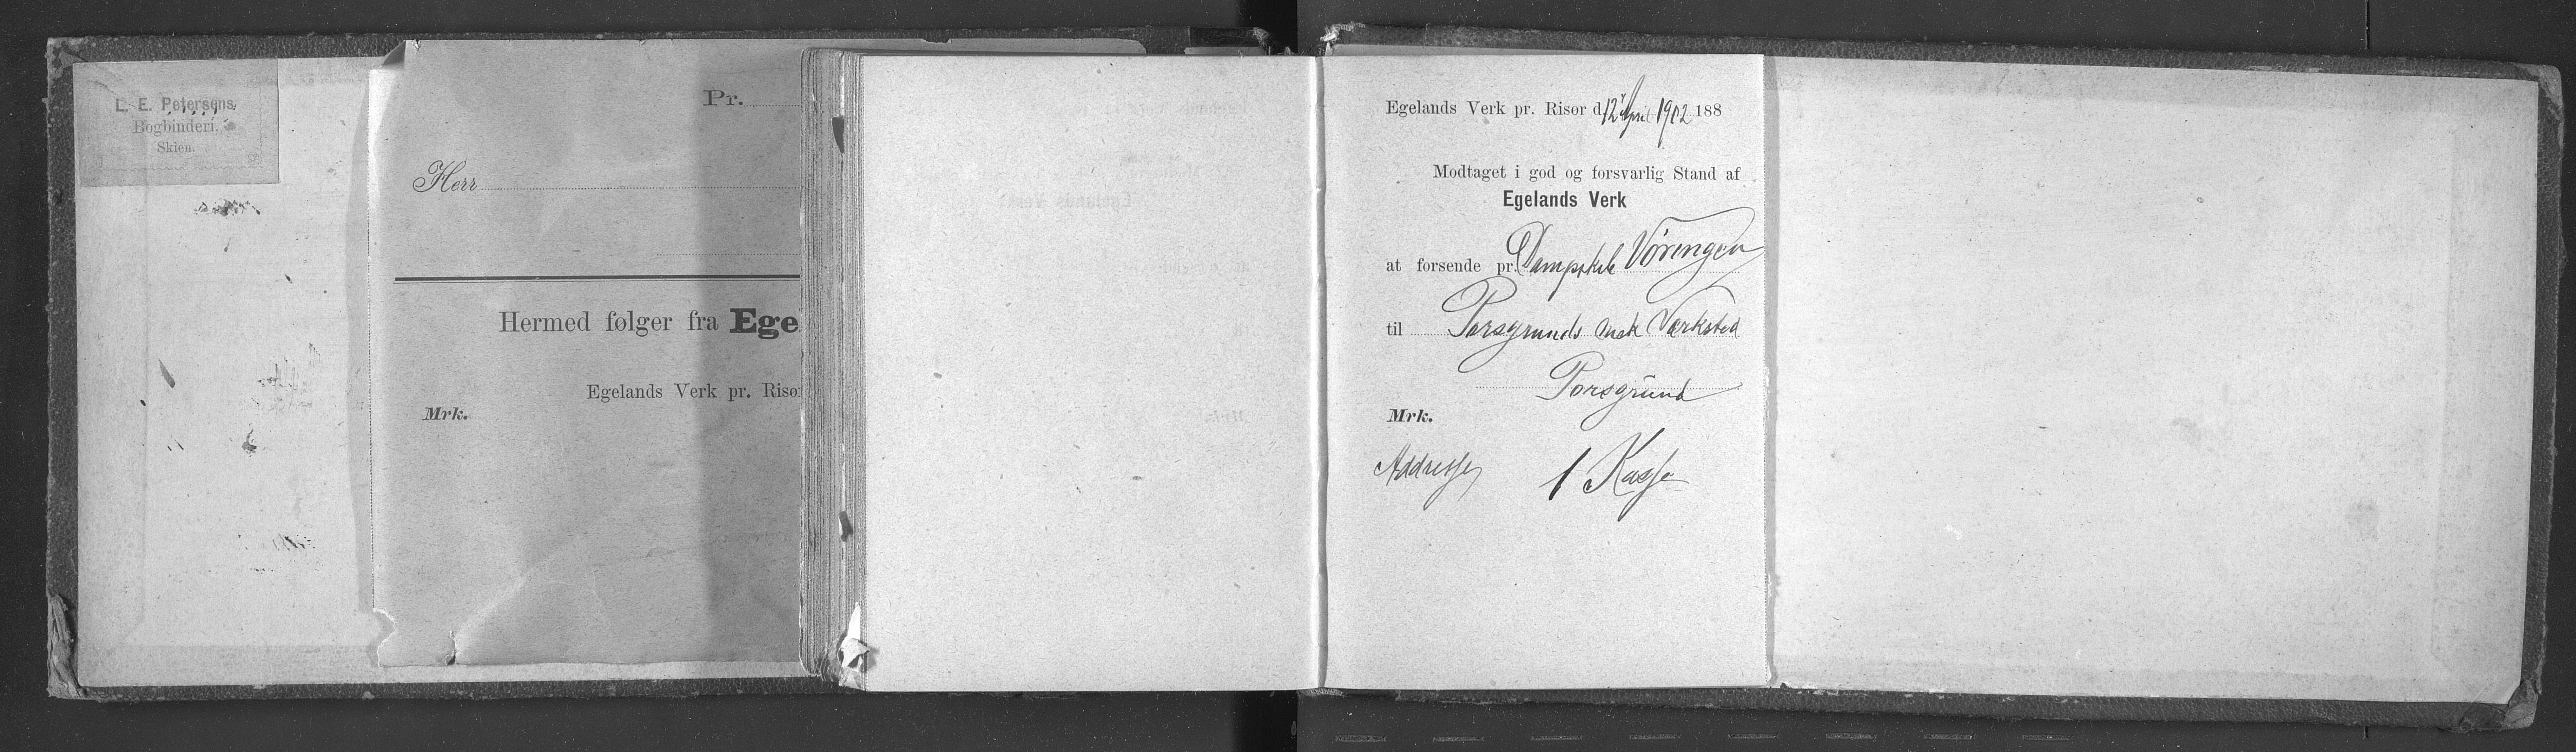 L. E. Petersens
Bogbinderi,
Skien.
Pr.
Herr
Hermed følger fra Ege
Egelands Verk pr. Riso
Mrk.
Egelands Verk pr. Risør d. 12 April 1902 188
Modtaget i god og forsvarlig Stand af
Egelands Verk
at forsende pr. Dampskib Vøringen
til Porsgrunds mek Værksted
Porsgrund
Mrk.
Addresse 1 Kasse